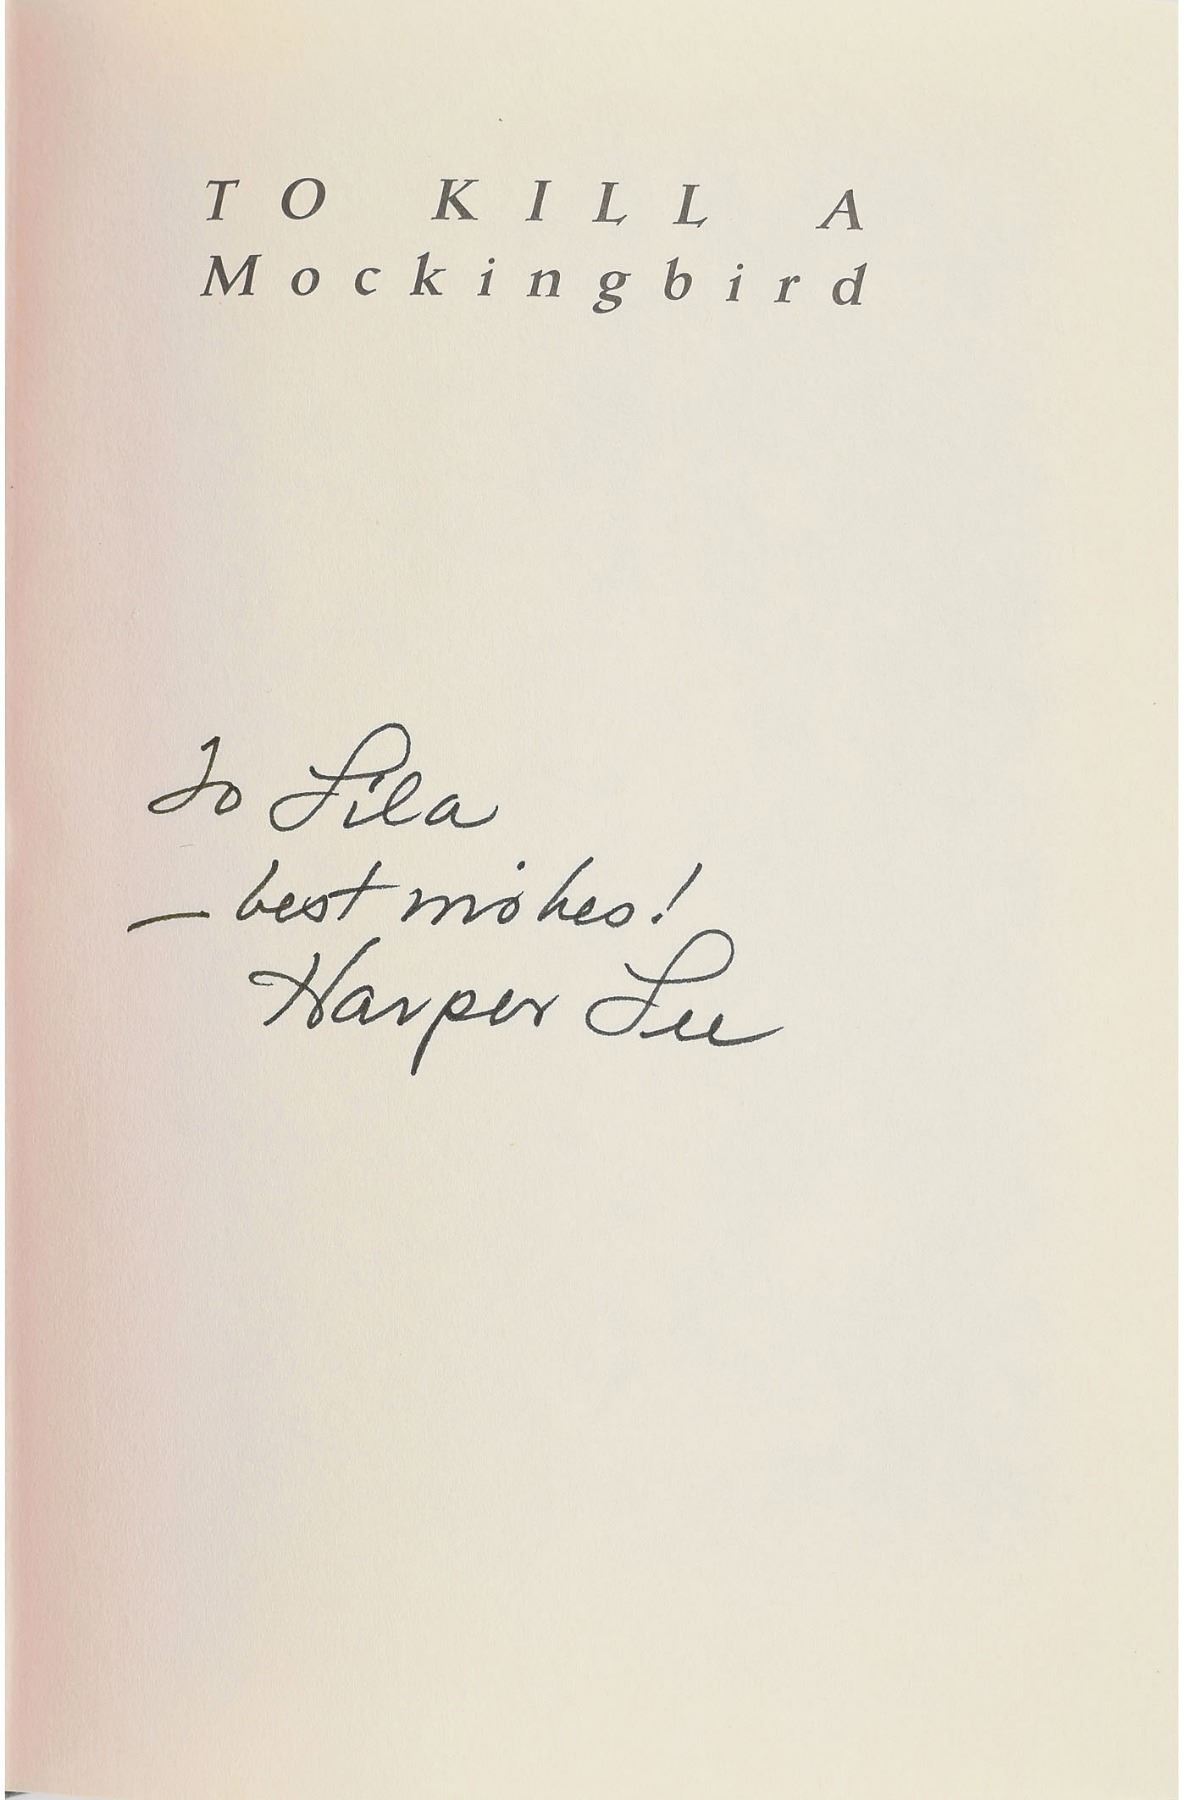 TO KILL A
Mockingbird
To Lila
— best wishes!
Harper Lee